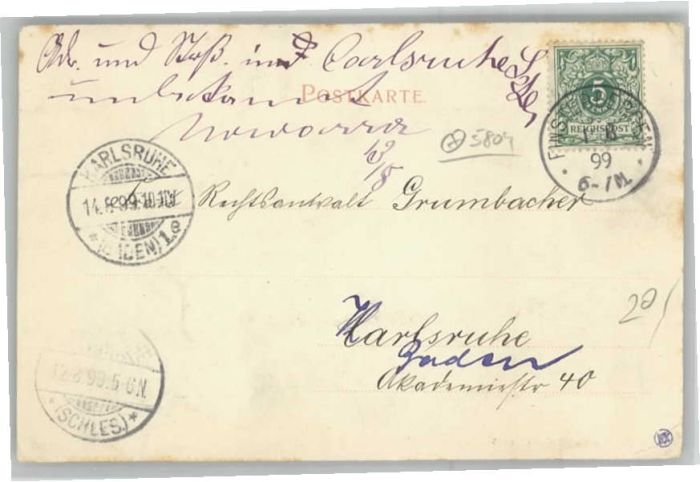 und in Carlsruhe Schles
unbekannt
POSTKARTE
13/8
5804
5
REICHSPOST
99
6-7N.
KARLSRUHE
14.8.99.
(BADEN) 1.e
Rechtsanwalt Grumbacher
Karlsruhe
Baden
Akademiestr 40
20/
12.8.99.5-6N.
*(SCHLES.)*